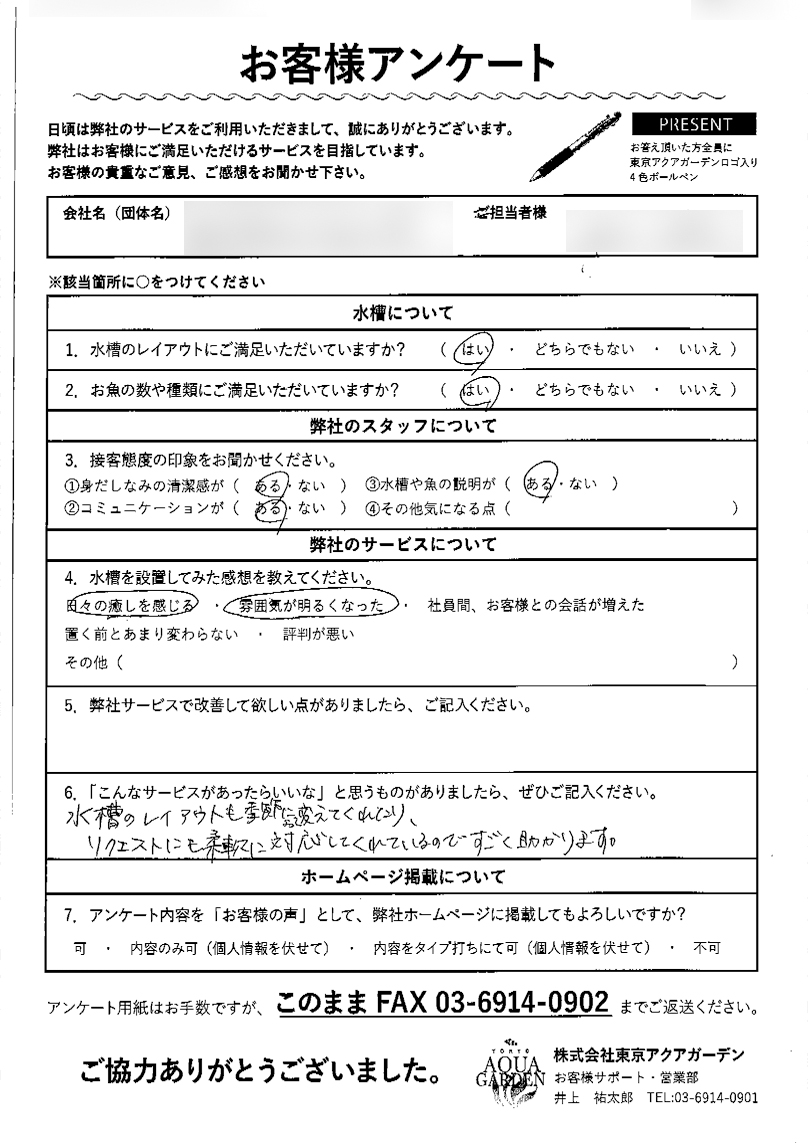 お客様アンケート
日頃は弊社のサービスをご利用いただきまして、誠にありがとうございます。
弊社はお客様にご満足いただけるサービスを目指しています。
お客様の貴重なご意見、ご感想をお聞かせ下さい。
PRESENT
お答え頂いた方全員に
東京アクアガーデンロゴ入り
4色ボールペン
会社名（団体名） ご担当者様
※該当箇所に○をつけてください
水槽について
1．水槽のレイアウトにご満足いただいていますか？ （ はい ・ どちらでもない ・ いいえ ）
2．お魚の数や種類にご満足いただいていますか？ （ はい ・ どちらでもない ・ いいえ ）
弊社のスタッフについて
3．接客態度の印象をお聞かせください。
①身だしなみの清潔感が（ ある・ない ） ③水槽や魚の説明が（ ある・ない ）
②コミュニケーションが（ ある・ない ） ④その他気になる点（ ）
弊社のサービスについて
4．水槽を設置してみた感想を教えてください。
日々の癒しを感じる ・ 雰囲気が明るくなった ・ 社員間、お客様との会話が増えた
置く前とあまり変わらない ・ 評判が悪い
その他（ ）
5．弊社サービスで改善して欲しい点がありましたら、ご記入ください。
6．「こんなサービスがあったらいいな」と思うものがありましたら、ぜひご記入ください。
水槽のレイアウトも季節に変えてくれたり、
リクエストにも柔軟に対応してくれているのですごく助かります。
ホームページ掲載について
7．アンケート内容を「お客様の声」として、弊社ホームページに掲載してもよろしいですか？
可 ・ 内容のみ可（個人情報を伏せて） ・ 内容をタイプ打ちにて可（個人情報を伏せて） ・ 不可
アンケート用紙はお手数ですが、このまま FAX 03-6914-0902 までご返送ください。
ご協力ありがとうございました。
TOKYO
AQUA
GARDEN
株式会社東京アクアガーデン
お客様サポート・営業部
井上 祐太郎 TEL:03-6914-0901